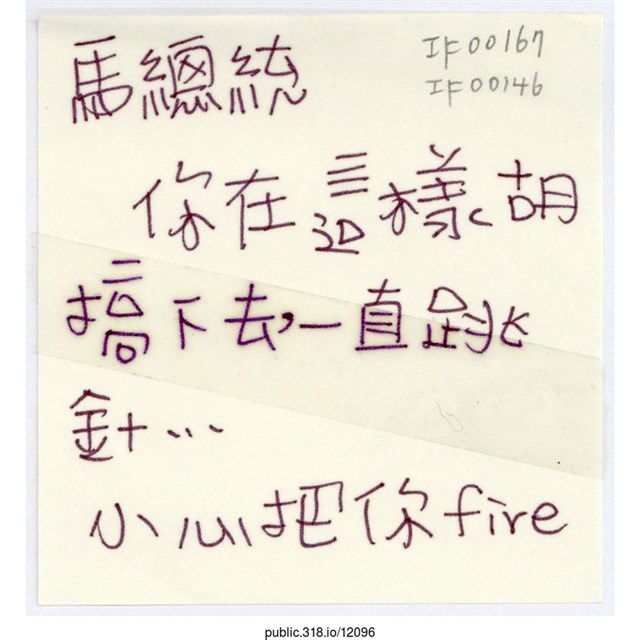 IF00167
IF00146
馬總統
你在這樣胡
搞下去,一直跳
針…
小心把你fire
public.318.io/12096